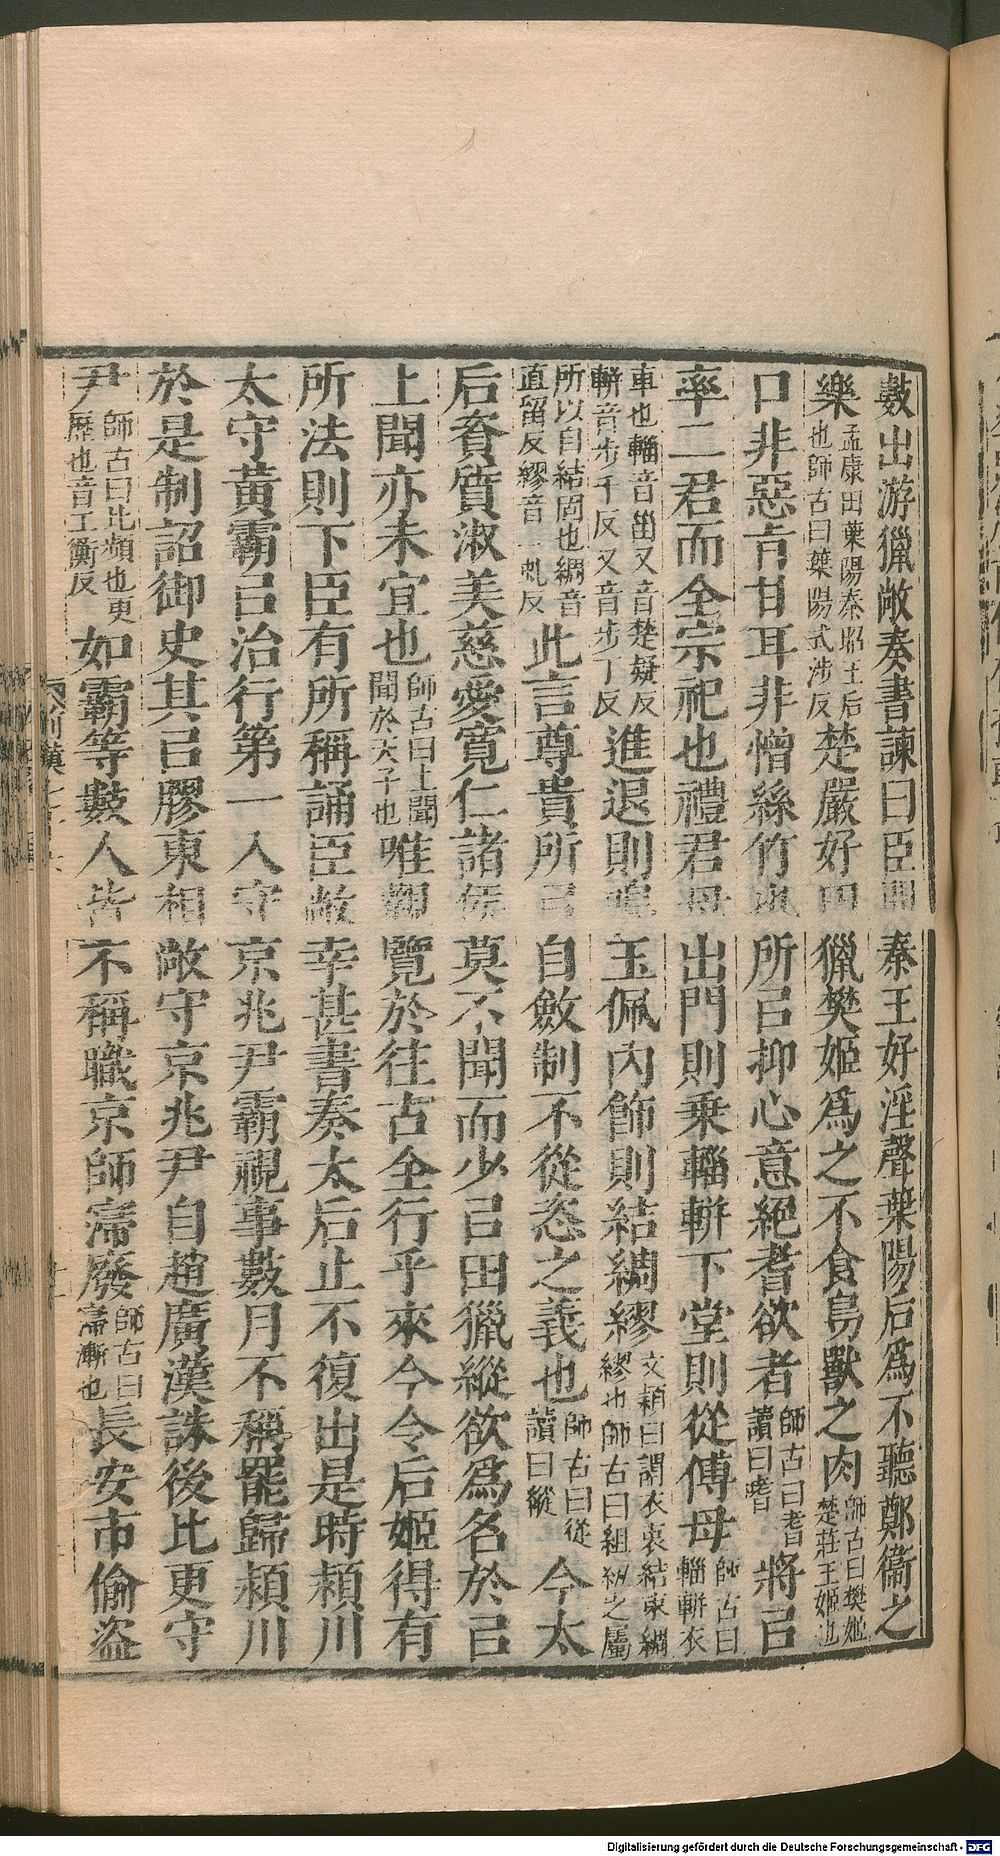 數出游獵敞奏書諫曰臣聞秦王好淫聲葉陽后爲不聽鄭衞之
樂孟康曰葉陽秦昭王后也師古曰葉陽式涉反楚嚴好田獵樊姬爲之不食鳥獸之肉師古曰樊姬楚莊王姬也
口非惡旨甘耳非憎絲竹也所㠯抑心意絕耆欲者師古曰耆讀曰嗜將㠯
率二君而全宗祀也禮君母出門則乘輜軿下堂則從傅母師古曰輜軿衣
車也輜音甾又音楚疑反軿音步千反又音步丁反進退則鳴玉佩內飾則結綢繆文穎曰謂衣衷結束綢繆也師古曰組紃之屬
所以自結固也綢音直留反繆音一虬反此言尊貴所㠯自斂制不從恣之義也師古曰從讀曰縱今太
后資質淑美慈愛寬仁諸侯莫不聞而少㠯田獵縱欲爲名於㠯
上聞亦未宜也師古曰上聞聞於天子也唯觀覽於往古全行乎來今令后姬得有
所法則下臣有所稱誦臣敞幸甚書奏太后止不復出是時潁川
太守黃霸㠯治行第一入守京兆尹霸視事數月不稱罷歸潁川
於是制詔御史其㠯膠東相敞守京兆尹自趙廣漢誅後比更守
尹師古曰比頻也更歷也音工衡反如霸等數人皆不稱職京師寖廢師古曰寖漸也長安市偷盜
Digitalisierung gefördert durch die Deutsche Forschungsgemeinschaft - DFG